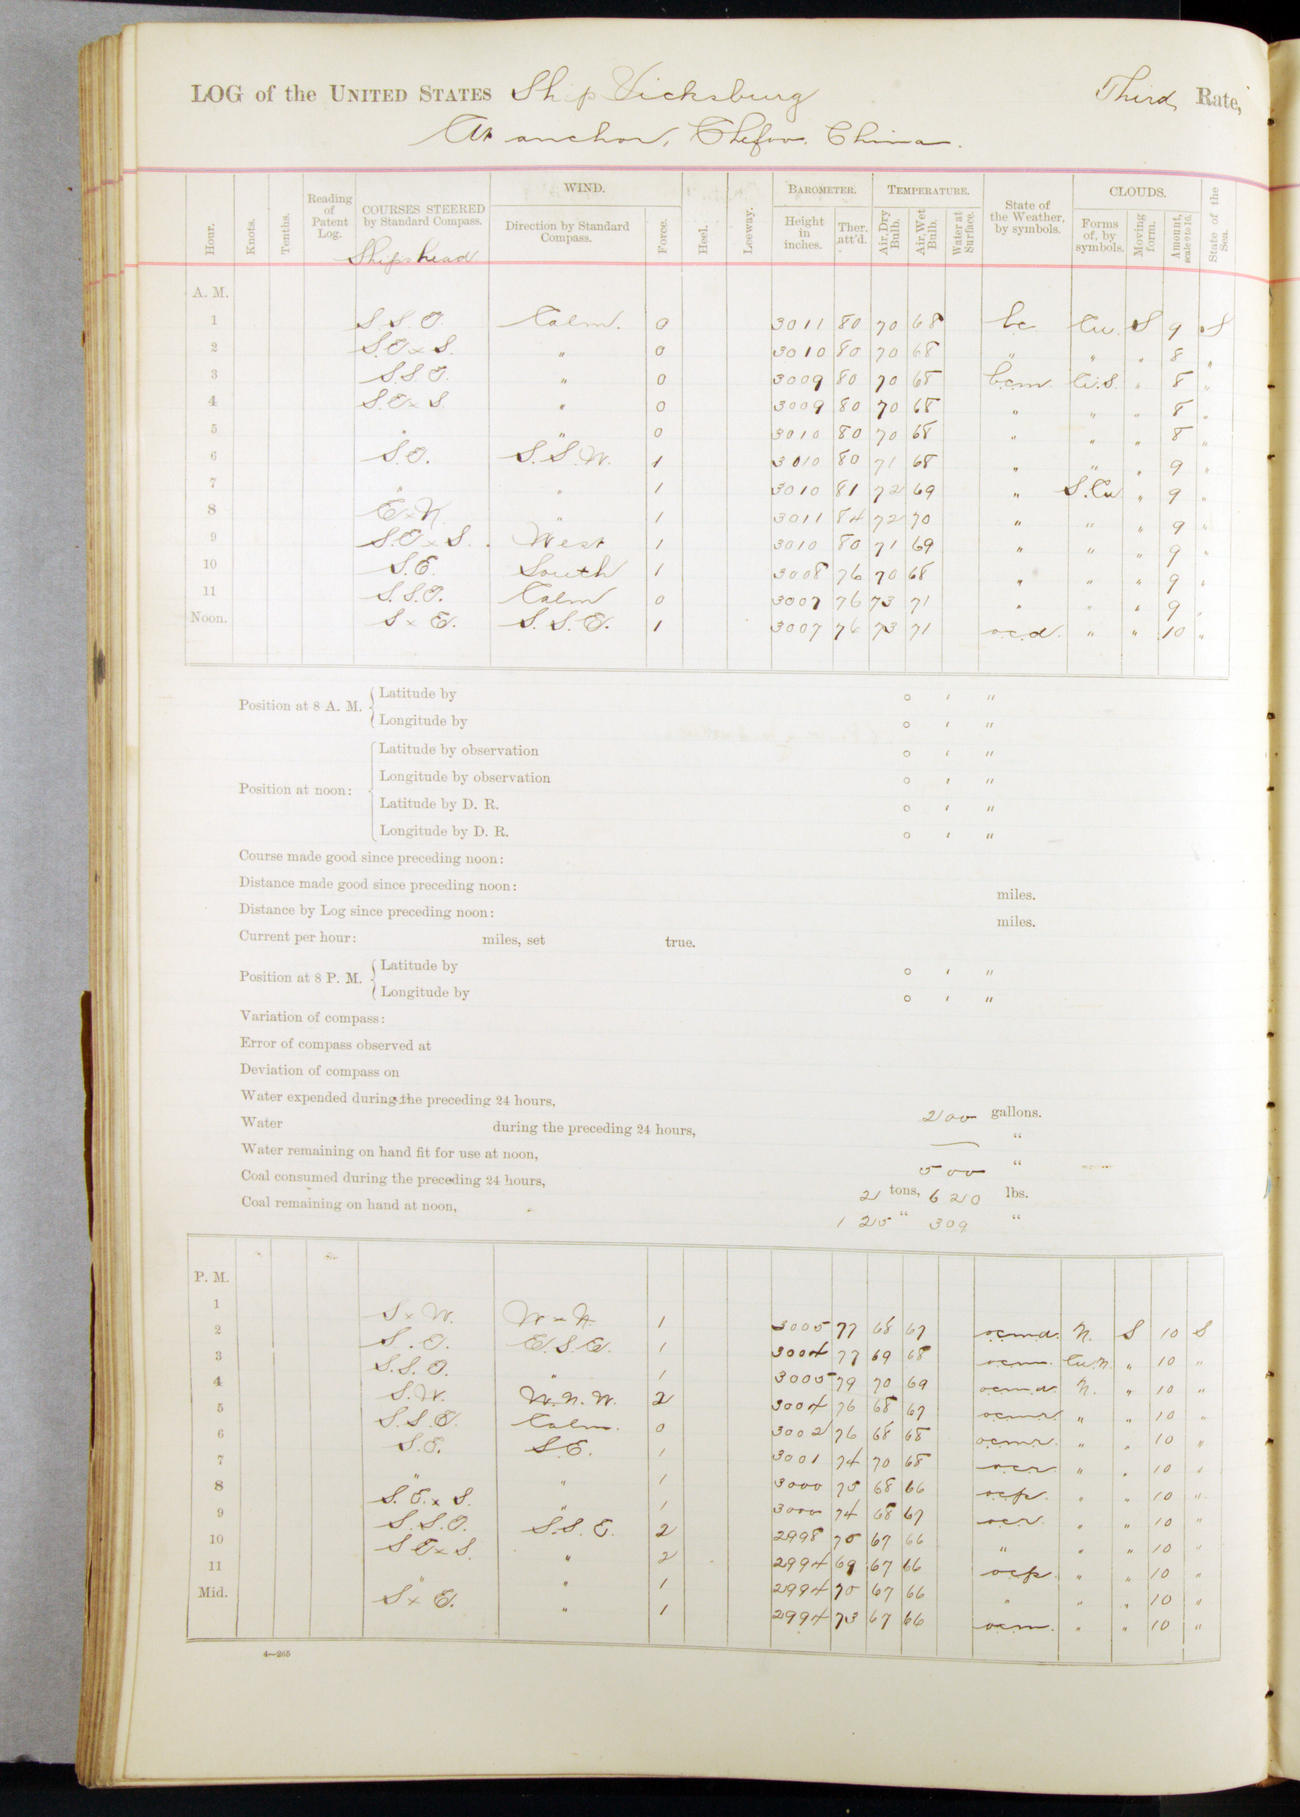 LOG of the UNITED STATES Ship Vicksburg Third Rate,
At anchor, Chefoo. China.
Hour. Knots. Tenths. Reading of Patent Log. COURSES STEERED by Standard Compass. Shipshead WIND. Direction by Standard Compass. Force. Heel. Leeway. BAROMETER. Height in inches. Ther. att'd. TEMPERATURE. Air, Dry Bulb. Air, Wet Bulb. Water at Surface. State of the Weather, by symbols. CLOUDS. Forms of, by symbols. Moving form. Amount, scale 0 to 10. State of the Sea.
A. M.
1 S.S.E. Calm. 0 3011 80 70 68 bc Cu. S 9 S
2 S.E x S. " 0 3010 80 70 68 " " " 8 "
3 S.S.E. " 0 3009 80 70 68 bcm Ci.S. " 8 "
4 S.E x S. " 0 3009 80 70 68 " " " 8 "
5 " " 0 3010 80 70 68 " " " 8 "
6 S.E. S.S.W. 1 3010 80 71 68 " " " 9 "
7 " " 1 3010 81 72 69 " S.Cu " 9 "
8 E x N. " 1 3011 84 72 70 " " " 9 "
9 S.E x S. West 1 3010 80 71 69 " " " 9 "
10 S.E. South 1 3008 76 70 68 " " " 9 "
11 S.S.E. Calm 0 3007 76 73 71 " " " 9 "
Noon. S x E. S.S.E. 1 3007 76 73 71 o.c.d. " " 10 "
Position at 8 A. M. Latitude by ° ' "
Longitude by ° ' "
Position at noon: Latitude by observation ° ' "
Longitude by observation ° ' "
Latitude by D. R. ° ' "
Longitude by D. R. ° ' "
Course made good since preceding noon:
Distance made good since preceding noon: miles.
Distance by Log since preceding noon: miles.
Current per hour: miles, set true.
Position at 8 P. M. Latitude by ° ' "
Longitude by ° ' "
Variation of compass:
Error of compass observed at
Deviation of compass on
Water expended during the preceding 24 hours, 200 gallons.
Water during the preceding 24 hours, — "
Water remaining on hand fit for use at noon, 500 "
Coal consumed during the preceding 24 hours, 2 tons, 620 lbs.
Coal remaining on hand at noon, 125 " 309 "
P. M.
1 S x W. W x N. 1 3005 77 68 67 ocmd. N. S 10 S
2 S.E. E.S.E. 1 3004 77 69 68 ocm. Cu.N. " 10 "
3 S.S.E. " 1 3005 79 70 69 ocmd. N. " 10 "
4 S.W. W.N.W. 2 3004 76 68 67 ocmr. " " 10 "
5 S.S.E. Calm. 0 3002 76 68 68 ocmr. " " 10 "
6 S.E. S.E. 1 3001 74 70 68 ocr. " " 10 "
7 " " 1 3000 75 68 66 ocp. " " 10 "
8 S.E. x S. " 1 3000 74 68 67 ocr. " " 10 "
9 S.S.E. S.S.E. 2 2998 75 67 66 " " " 10 "
10 S E x S. " 2 2994 69 67 66 ocp. " " 10 "
11 " " 1 2994 70 67 66 " " " 10 "
Mid. S x E. " 1 2994 73 67 66 ocm. " " 10 "
4—265